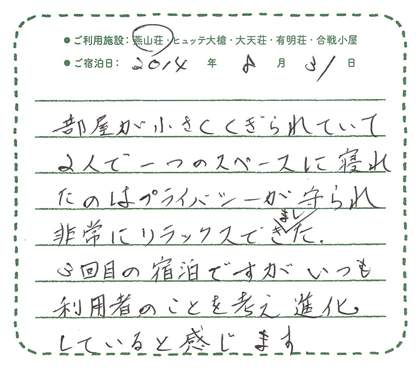 ●ご利用施設:燕山荘・ヒュッテ大槍・大天荘・有明荘・合戦小屋
●ご宿泊日: 2014 年 8 月 31 日
部屋が小さくくぎられていて
2人で一つのスペースに寝れ
たのはプライバシーが守られ
非常にリラックスできました.
3回目の宿泊ですがいつも
利用者のことを考え進化
していると感じます